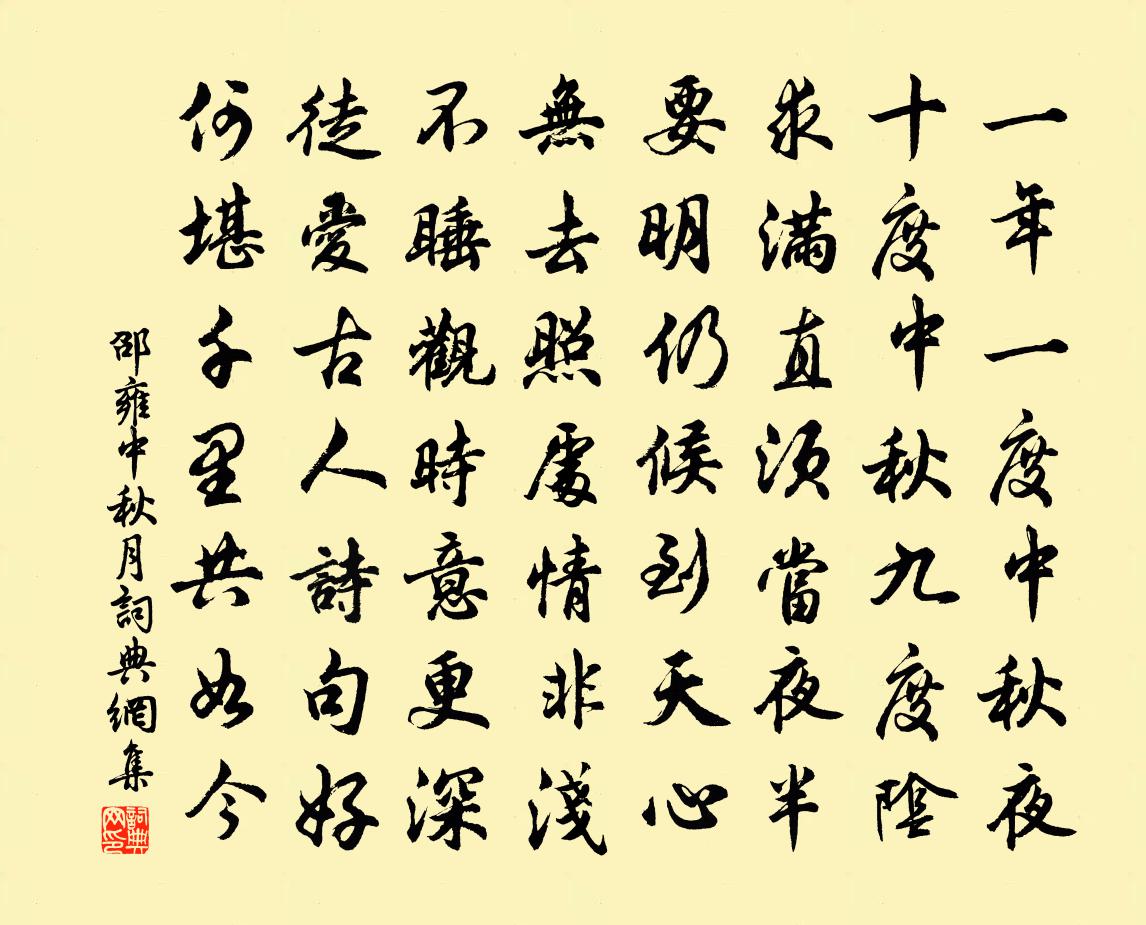 一年一度中秋夜
十度中秋九度陰
求滿直須當夜半
要明仍候到天心
無去照處情非淺
不睡觀時意更深
徒愛古人詩句好
何堪千里共如今
邵雍中秋月詞典網集
詞典网印